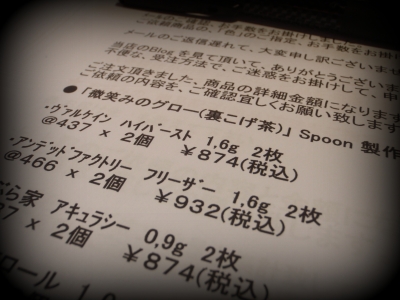 ご依頼商品の、「色」のご指定、お手数をお掛け
メールのご返信遅れて、大変申し訳ございませ
当店のBlogを見て頂いて、ありがとうございま
不便な、受注方法で、ご迷惑をお掛けして、申
ご注文頂きました、商品の詳細金額になります
ご依頼の内容を、ご確認宜しくお願い致します
●「微笑みのグロー(裏こげ茶)」Spoon 製作
・ヴァルケイン ハイバースト 1,6g 2枚
@437 × 2個 ￥874(税込)
・アンデッドファクトリー フリーザー 1,6g 2枚
@466 × 2個 ￥932(税込)
ら家 アキュラシー 0,9g 2枚
7 × 2個 ￥874(税込)
ロール 1,0